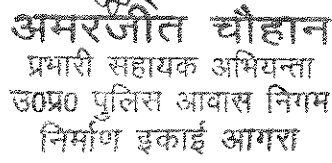 अमरजीत चौहान
प्रभारी सहायक अभियन्ता
उ0प्र0 पुलिस आवास निगम
निर्माण इकाई आगरा